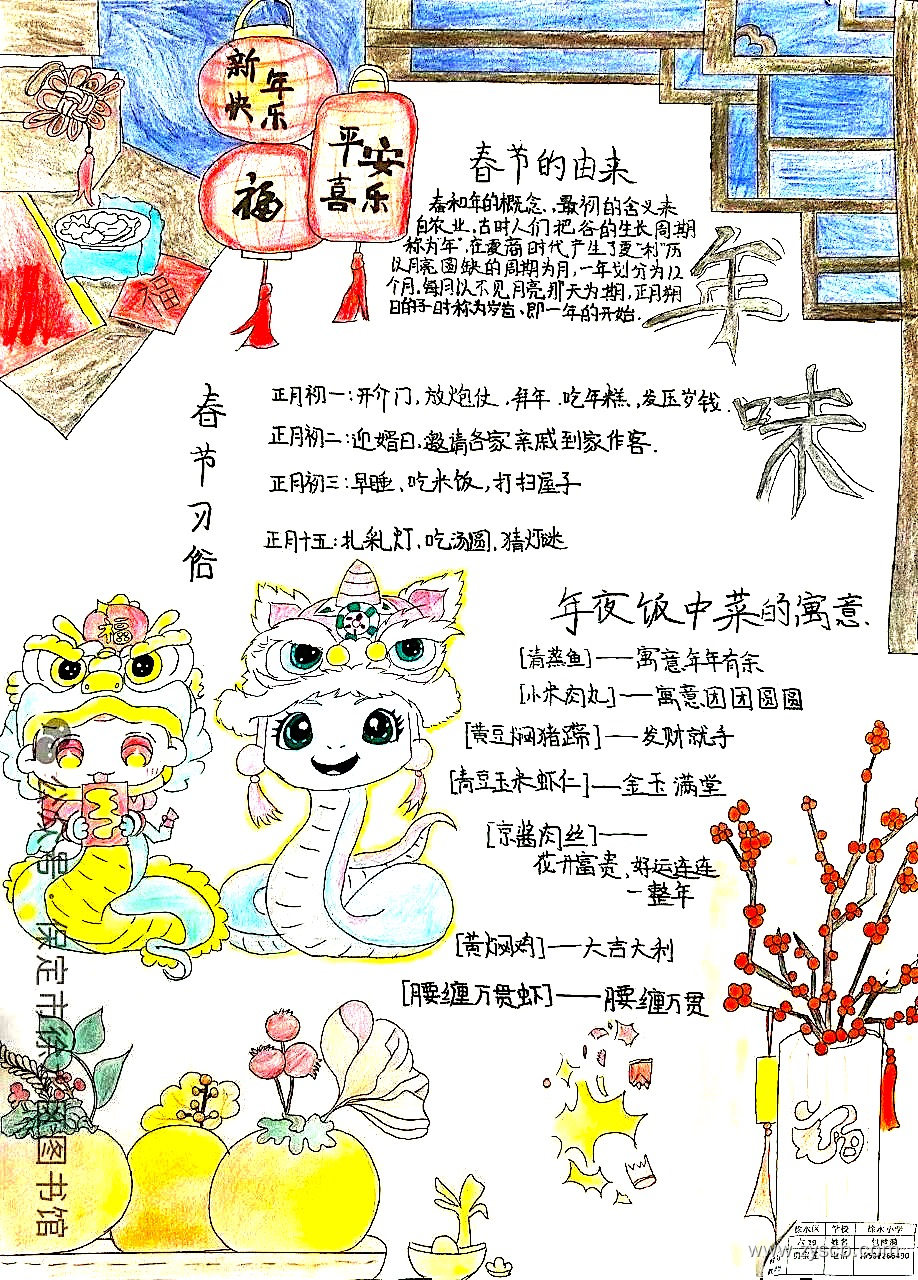 新年
快乐
平安
喜乐
福
福
春节的由来
春和年的概念,最初的含义来
自农业,古时人们把谷的生长周期
称为"年",在夏商时代产生了夏"利"历
以月亮圆缺的周期为月,一年划分为12
个月,每月以不见月亮那天为期,正月朔
日的子时称为岁首、即一年的开始.
年
味
春节习俗
正月初一:开介门,放炮仗,拜年.吃年糕、发压岁钱.
正月初二:迎婿日,邀请各家亲戚到家作客.
正月初三:早睡、吃米饭,打扫屋子
正月十五:扎彩灯、吃汤圆,猜灯谜
年夜饭中菜的寓意.
[清蒸鱼]——寓意年年有余
[小米肉丸]——寓意团团圆圆
[黄豆焖猪蹄]——发财就手
[青豆玉米虾仁]——金玉满堂
[京酱肉丝]——
花开富贵、好运连连
一整年
[黄焖鸡]——大吉大利
[腰缠万贯虾]——腰缠万贯
福
福
公众号·保定市徐水区图书馆
徐水区 学校 徐水小学
姓名
www.zyscb.com